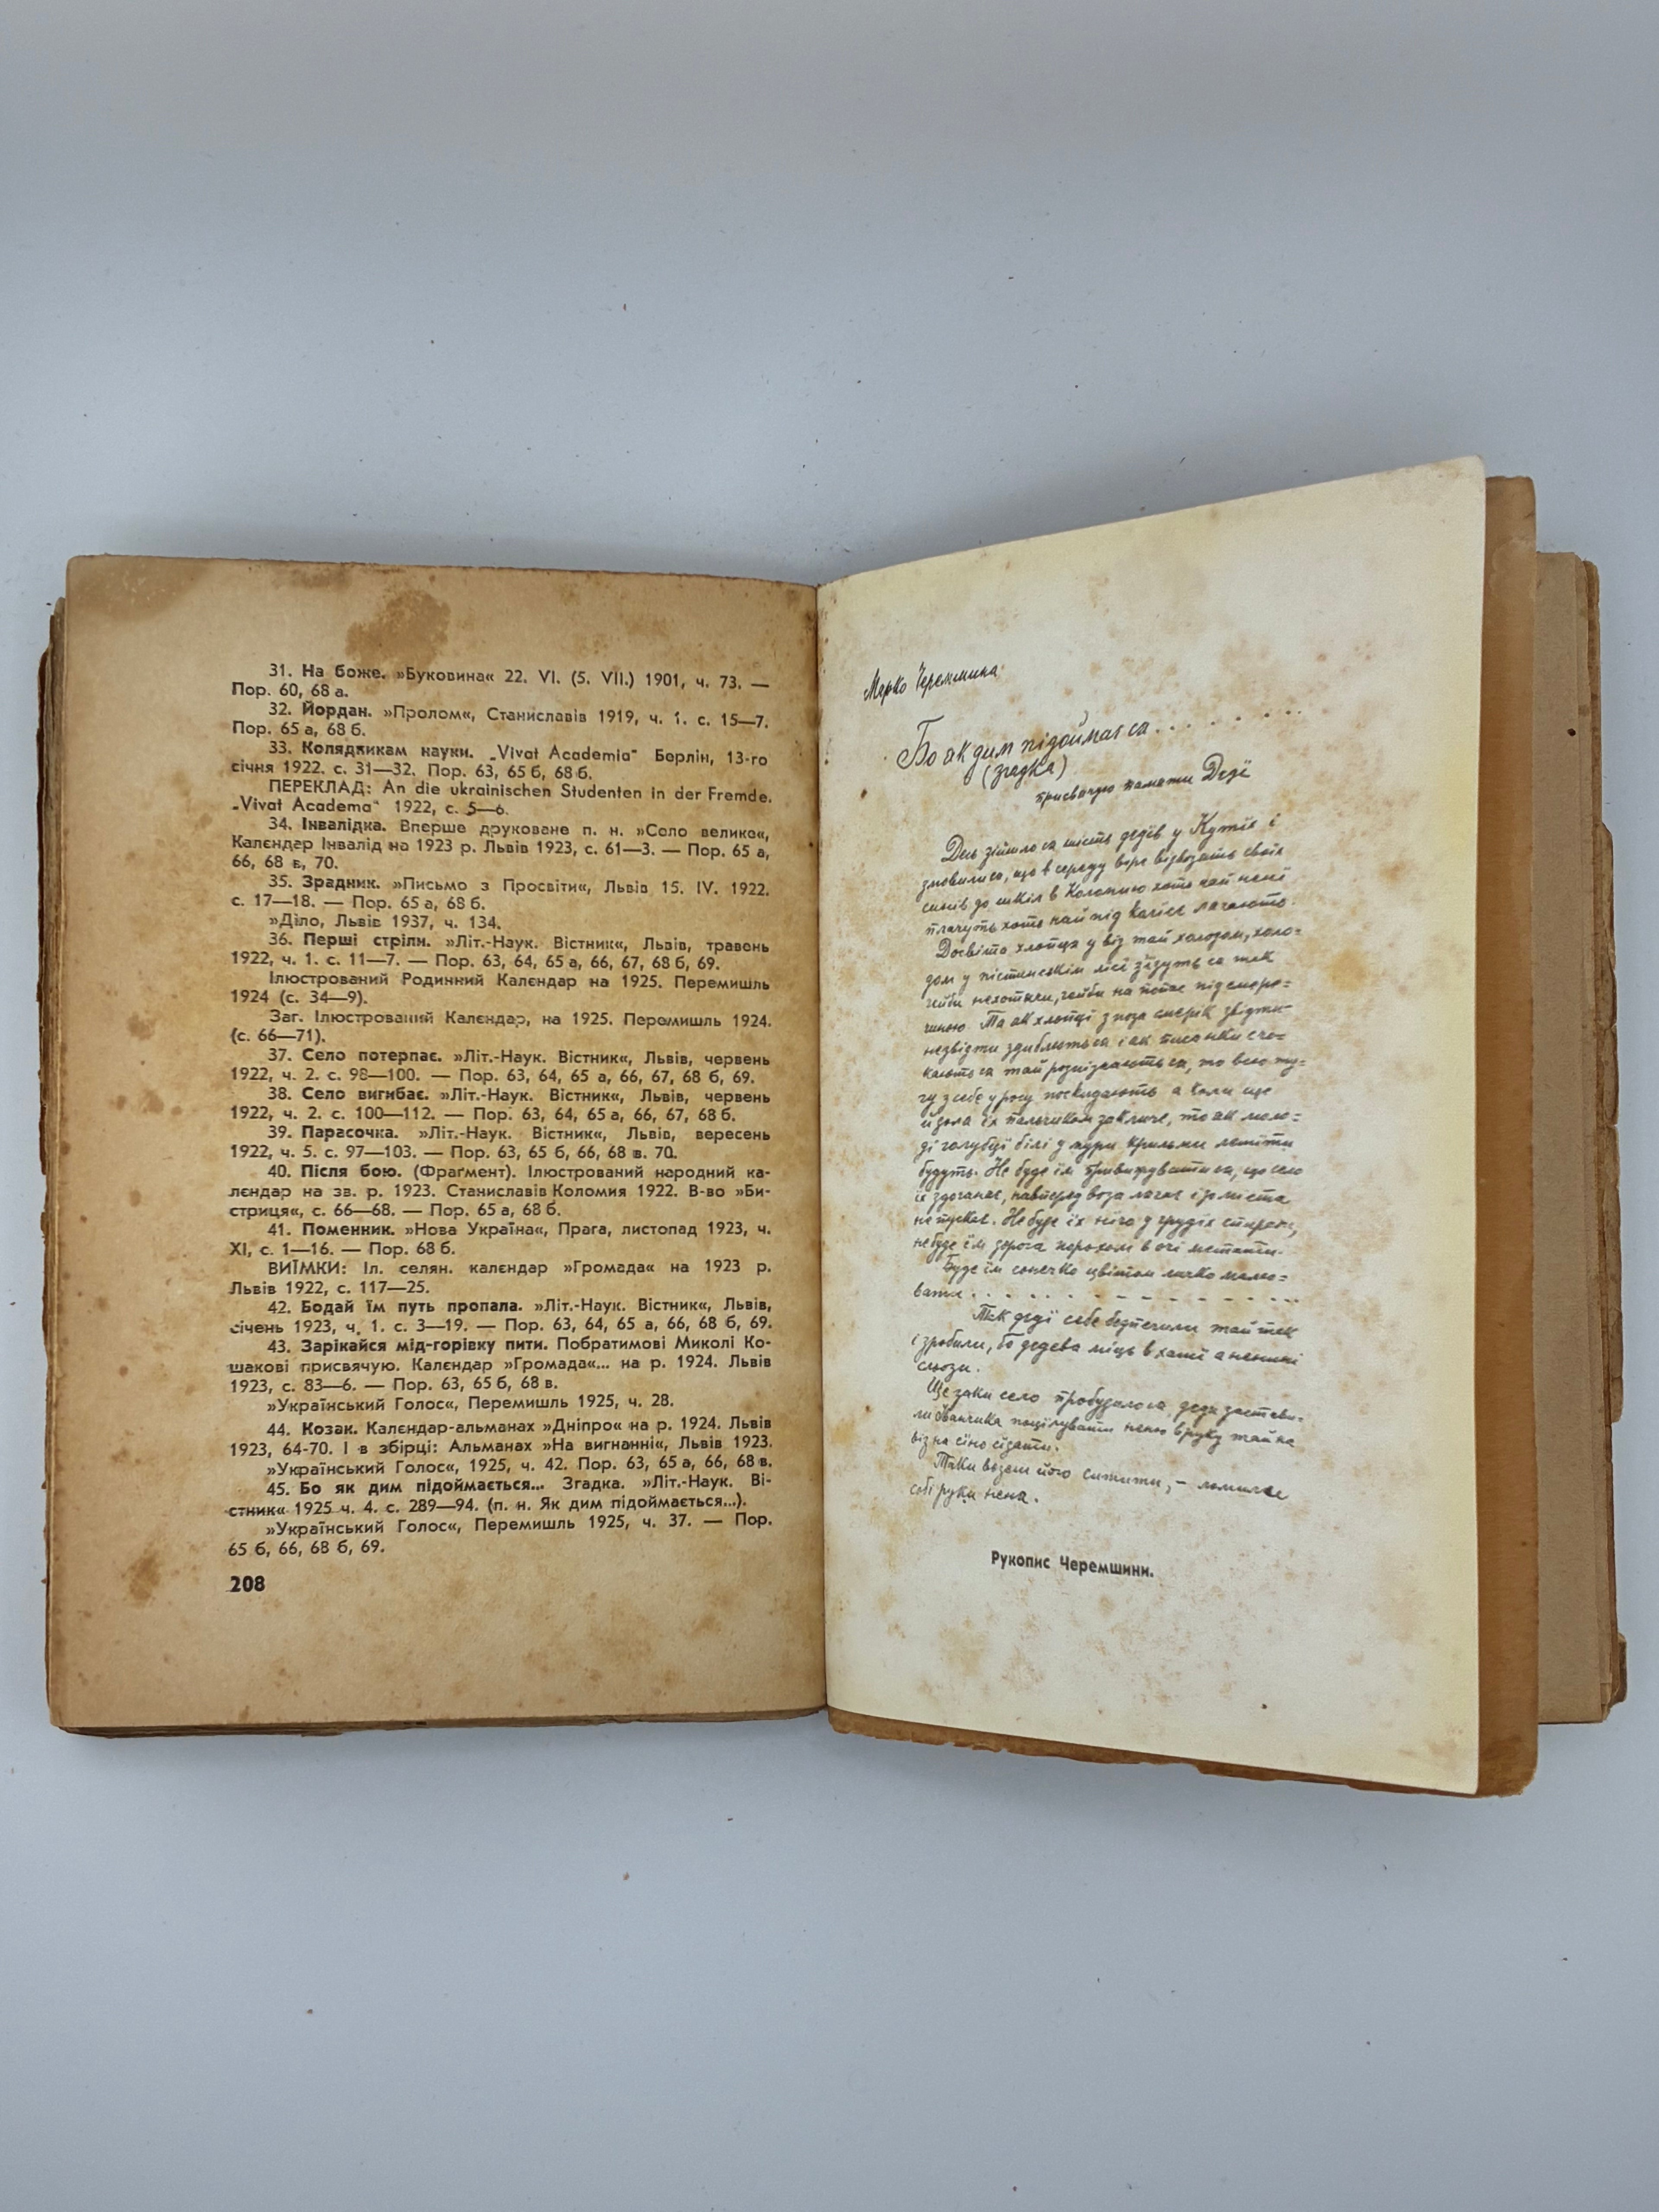 31. На боже. »Буковина« 22. VI. (5. VII.) 1901, ч. 73. —
Пор. 60, 68 а.
32. Йордан. »Пролом«, Станиславів 1919, ч. 1. с. 15—7.
Пор. 65 а, 68 б.
33. Колядникам науки. „Vivat Academia" Берлін, 13-го
січня 1922. с. 31—32. Пор. 63, 65 б, 68 б.
ПЕРЕКЛАД: An die ukrainischen Studenten in der Fremde.
„Vivat Academa" 1922, с. 5—6.
34. Інвалідка. Вперше друковане п. н. »Село велике«,
Календар Інвалід на 1923 р. Львів 1923, с. 61—3. — Пор. 65 а,
66, 68 в, 70.
35. Зрадник. »Письмо з Просвіти«, Львів 15. IV. 1922.
с. 17—18. — Пор. 65 а, 68 б.
»Діло, Львів 1937, ч. 134.
36. Перші стріли. »Літ.-Наук. Вістник«, Львів, травень
1922, ч. 1. с. 11—7. — Пор. 63, 64, 65 а, 66, 67, 68 б, 69.
Ілюстрований Родинний Календар на 1925. Перемишль
1924 (с. 34—9).
Заг. Ілюстрований Календар, на 1925. Перемишль 1924.
(с. 66—71).
37. Село потерпає. »Літ.-Наук. Вістник«, Львів, червень
1922, ч. 2. с. 98—100. — Пор. 63, 64, 65 а, 66, 67, 68 б, 69.
38. Село вигибає. »Літ.-Наук. Вістник«, Львів, червень
1922, ч. 2. с. 100—112. — Пор. 63, 64, 65 а, 66, 67, 68 б.
39. Парасочка. »Літ.-Наук. Вістник«, Львів, вересень
1922, ч. 5. с. 97—103. — Пор. 63, 65 б, 66, 68 в. 70.
40. Після бою. (Фраґмент). Ілюстрований народний ка-
лєндар на зв. р. 1923. Станиславів Коломия 1922. В-во »Би-
стриця«, с. 66—68. — Пор. 65 а, 68 б.
41. Поменник. »Нова Україна«, Прага, листопад 1923, ч.
XI, с. 1—16. — Пор. 68 б.
ВИЇМКИ: Іл. селян. календар »Громада« на 1923 р.
Львів 1922, с. 117—25.
42. Бодай їм путь пропала. »Літ.-Наук. Вістник«, Львів,
січень 1923, ч. 1. с. 3—19. — Пор. 63, 64, 65 а, 66, 68 б, 69.
43. Зарікайся мід-горівку пити. Побратимові Миколі Ко-
шакові присвячую. Календар »Громада«... на р. 1924. Львів
1923, с. 83—6. — Пор. 63, 65 б, 68 в.
»Український Голос«, Перемишль 1925, ч. 28.
44. Козак. Календар-альманах »Дніпро« на р. 1924. Львів
1923, 64-70. І в збірці: Альманах »На вигнанні«, Львів 1923.
»Український Голос«, 1925, ч. 42. Пор. 63, 65 а, 66, 68 в.
45. Бо як дим підоймається... Згадка. »Літ.-Наук. Ві-
стник« 1925 ч. 4. с. 289—94. (п. н. Як дим підоймається...).
»Український Голос«, Перемишль 1925, ч. 37. — Пор.
65 б, 66, 68 б, 69.
208
Марко Черемшина
Бо як дим підоймає са . . . . . . .
(згадка)
присвячую памяти Дєдї
Десь зійшло са шість дєдів у Кутїх і
змовили са, що в середу вірє відвозить своїх
синів до шкіл в Коломию хоть най нені
плачуть хоть най під колїсє лягають.
Досвіта хлопцї у віз тай холодом, холо=
дом у пістинськім лісї зїздуть са так
гейби нехотячи, гейби на попас під смере=
чиною. Та як хлопцї з поза смерік звідти-
незвідти здиблють са і як писанки счо=
кають са тай розпізнають са, то всю ту=
гу з себе у росу поскидають а коли ще
й золя їх пальчиком закличе, то як моло=
ді голубцї білі з мури крильми летїти
будуть. Не буде їм привиджувати са, що село
їх здоганяє, навперед воза лягає і до міста
не пускає. Не буде їх нїчо у грудїх спирати,
не буде їм дорога порохом в очі метати.
Буде їм сонечко цвітом личко малю=
вати . . . . . . . . . . . .
Так дєдї себе безпечили тай так
і зробили, бо дєдева міць в хатї а ненині
сльози.
Ще заки село пробудило са, дєдя застави=
ли Иванчика поцїлувати неню в руку тай на
віз на сїно сїдати.
Таки везеш його синити, — ломиле
собі руки неня.
Рукопис Черемшини.